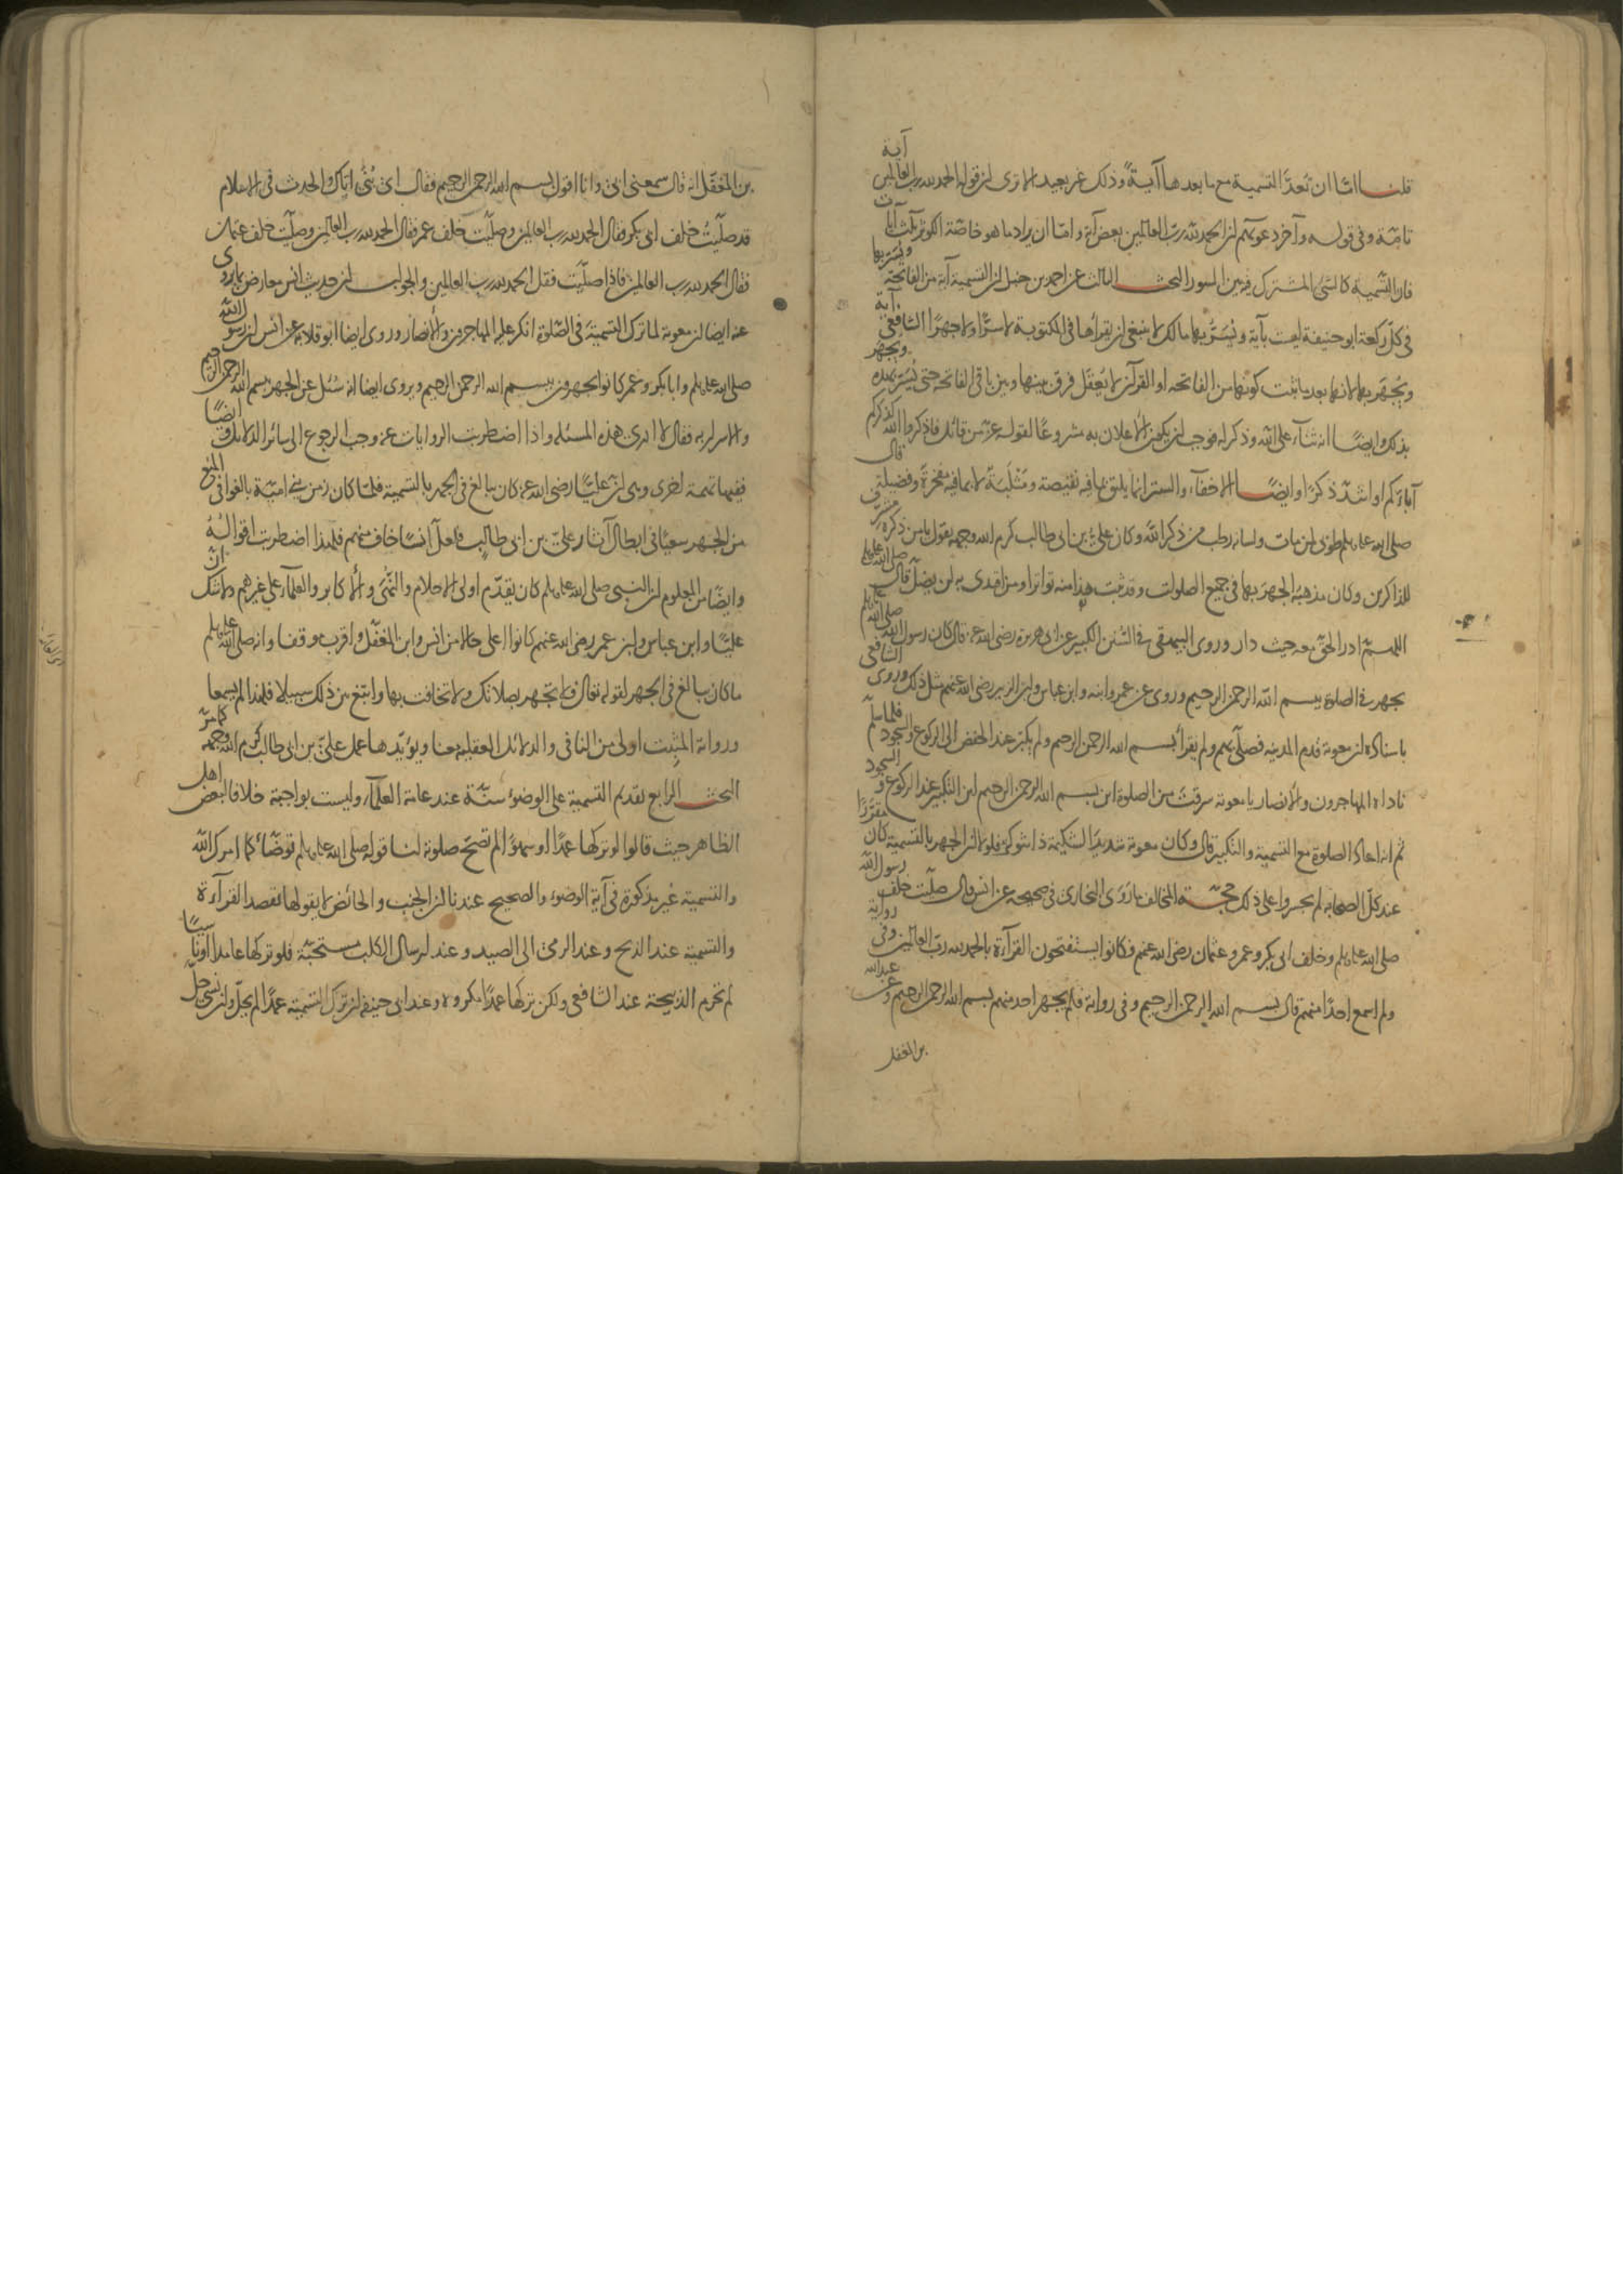 قلنا امّا ان تُعدّ التسمية مع ما بعدها آيةً وذلك غير بعيد الا ترى ان قوله الحمد لله رب العالمين آية
تامّة وفى قوله وآخر دعويهم ان الحمد لله ربّ العالمين بعض آية وامّا ان يراد ما هو خاصّة الكوثر ثلث آيات
فان التسمية كالشئ المشترك فيه بين السور البحث الثالث عن احمد بن حنبل ان التسمية آية من الفاتحة ويُسَرّ بها
فى كلّ ركعة ابو حنيفة ليست بآية ويُسَرُّ بها مالك لا ينبغى ان يقرأها فى المكتوبة لا سرًّا ولا جهرًا الشافعى آية
ويُجهَر بها لانها بعد ما ثبت كونها من الفاتحه او القرآن لا يُعقَل فرق بينها وبين باقى الفاتحه حتى يُسَرّ بهذه ويجهر
بذلك وايضًا انه ثناء على الله وذكر له فوجب ان يكون الاعلان به مشروعًا لقوله عزّ من قائل فاذكروا الله كذكركم
آباءكم او اشدّ ذكرًا وايضًا الاخفاء والستر انما يليق بما فيه نقيصة ومَثلَبة لا بما فيه مفخرةً وفضيلة قال
صلى الله عليه وسلم طوبى لمن مات ولسانه رطب من ذكر الله وكان علىّ بن ابى طالب كرم الله وجهه يقول يا من ذكره شرف
للذاكرين وكان مذهبه الجهرَ بها فى جميع الصلوات وقد ثبت هذا منه تواترا ومن اقتدى به لن يضلّ قال صلى الله عليه وسلم
اللهمّ ادر الحقّ معه حيث دار وروى البيهقى فى السُّنن الكبير عن ابى هريرة رضى الله عنه قال كان رسول الله صلى الله عليه وسلم
يجهر فى الصلوة ببسم الله الرحمن الرحيم وروى عن عمر وابنه وابن عباس وابن الزبير رضى الله عنهم مثل ذلك وروى الشافعى
باسناده ان معوية قدم المدينه فصلّى بهم ولم يقرأ بسم الله الرحمن الرحيم ولم يكبّر عند الخفض الى الركوع والسجود فلما سلّم
ناداه المهاجرون والانصار يا معوية سرقتَ من الصلوة اين بسم الله الرحمن الرحيم اين التكبير عند الركوع و السجود
ثم انه اعاد الصلوة مع التسمية والتكبير قال وكان معوية شديدَ الشكيمة ذا شوكة فلولا ان الجهر بالتسمية كان مقرّرًا
عند كلّ الصحابه لم يجسروا على ذلك حجّة المخالف ما رَوَى البخارى فى صحيحه عن انس قال صلّيت خلف رسول الله
صلى الله عليه وسلم وخلف ابى بكر وعمر وعثمان رضى الله عنهم فكانوا يستفتحون القرآءة بالحمد لله ربّ العالمين وفى رواية
ولم اسمع احدًا منهم قال بسم الله الرحمن الرحيم وفى رواية فلم يجهر احد منهم بسم الله الرحمن الرحيم وعن عبدالله
بن المغفل
بن المُغفّل انه قال سمعنى ابى وانا اقول بسم الله الرحمن الرحيم فقال اى بُنَىّ اياك والحدث فى الاسلام
قد صلّيتُ خلف ابى بكر فقال الحمد لله رب العالمين وصلّيت خلف عمر فقال الحمد لله رب العالمين وصلّيت خلف عثمان
فقال الحمد لله رب العالمين فاذا صلّيت فقل الحمد لله رب العالمين والجواب ان حديث انس معارض بما يروى
عنه ايضا ان معوية لما ترك التسميةَ فى الصّلوة انكر عليه المهاجرون والانصار وروى ايضا ابو قلابه عن انس ان رسول الله
صلى الله عليه وسلم وابا بكر وعمر كانوا يجهرون ببسم الله الرحمن الرحيم ويروى ايضا انه سُئل عن الجهر ببسم الله الرحمن الرحيم
والاسرار به فقال لا ادرى هذه المسئله واذا اضطربت الروايات عنه وجب الرجوع الى سائر الدلائل وايضًا
ففيها تهمة اخرى وهى انّ عليًّا رضى الله عنه كان يبالغ فى الجهر بالتسمية فلمّا كان زمن بنى اميّة بالغوا فى المنع
من الجهر سعيًا فى ابطال آثار علىّ بن ابى طالب فلعلّ انسًا خاف منهم فلهذا اضطربت اقوالُهُ
وايضًا من المعلوم ان النبى صلى الله عليه وسلم كان يقدّم اولى الاحلام والنُّهَى والاكابر والعلماء على غيرهم ولا شك انّ
عليًّا وابن عباس وابن عمر رضى الله عنهم كانوا اعلى حالا من انس وابن المغفّل واقرب موقفا وانه صلى الله عليه وسلم
ما كان يبالغ فى الجهر لقوله تعالى ولا تجهر بصلاتك ولا تخافت بها وابتغ بين ذلك سبيلا فلهذا لم يسمعا
ورواية المثبِت اولى من النافى والدلائل العقليه معنا ويؤيّدها عمل علىّ بن ابى طالب كرم الله وجهه كما مرّ
البحث الرابع تقديم التسمية على الوضوء سنّة عند عامة العلمآء وليست بواجبة خلافا لبعض اهل
الظاهر حيث قالوا لو تركها عمدًا او سهوًا لم تصحّ صلوته لنا قوله صلى الله عليه وسلم توضّأ كما امرك الله
والتسمية غير مذكورة فى آية الوضوء والصحيح عندنا ان الجنب والحائض لا يقولها بقصد القرآءة
والتسمية عند الذبح وعند الرمى الى الصيد وعند ارسال الكلب مستحبّة فلو تركها عامدا او ناسيًا
لم تحرم الذبيحة عند الشافعى ولكن تركها عمدًا مكروه وعند ابى حنيفه ان ترك التسمية عمدًا لم يحلّ وان نسى حلّ